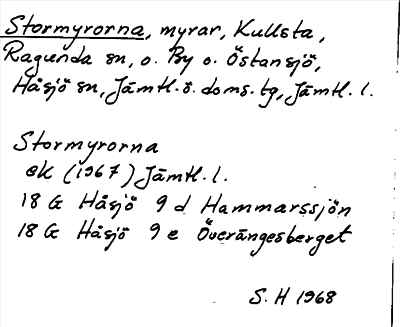 Stormyrorna, myrar, Kullsta,
Ragunda sn, o. By o. Östansjö,
Håsjö sn, Jämtl. ö. doms. tg, Jämtl. l.
Stormyrorna
ek (1967) Jämtl. l.
18 G Håsjö 9 d Hammarssjön
18 G Håsjö 9 e Överängesberget
S. H 1968